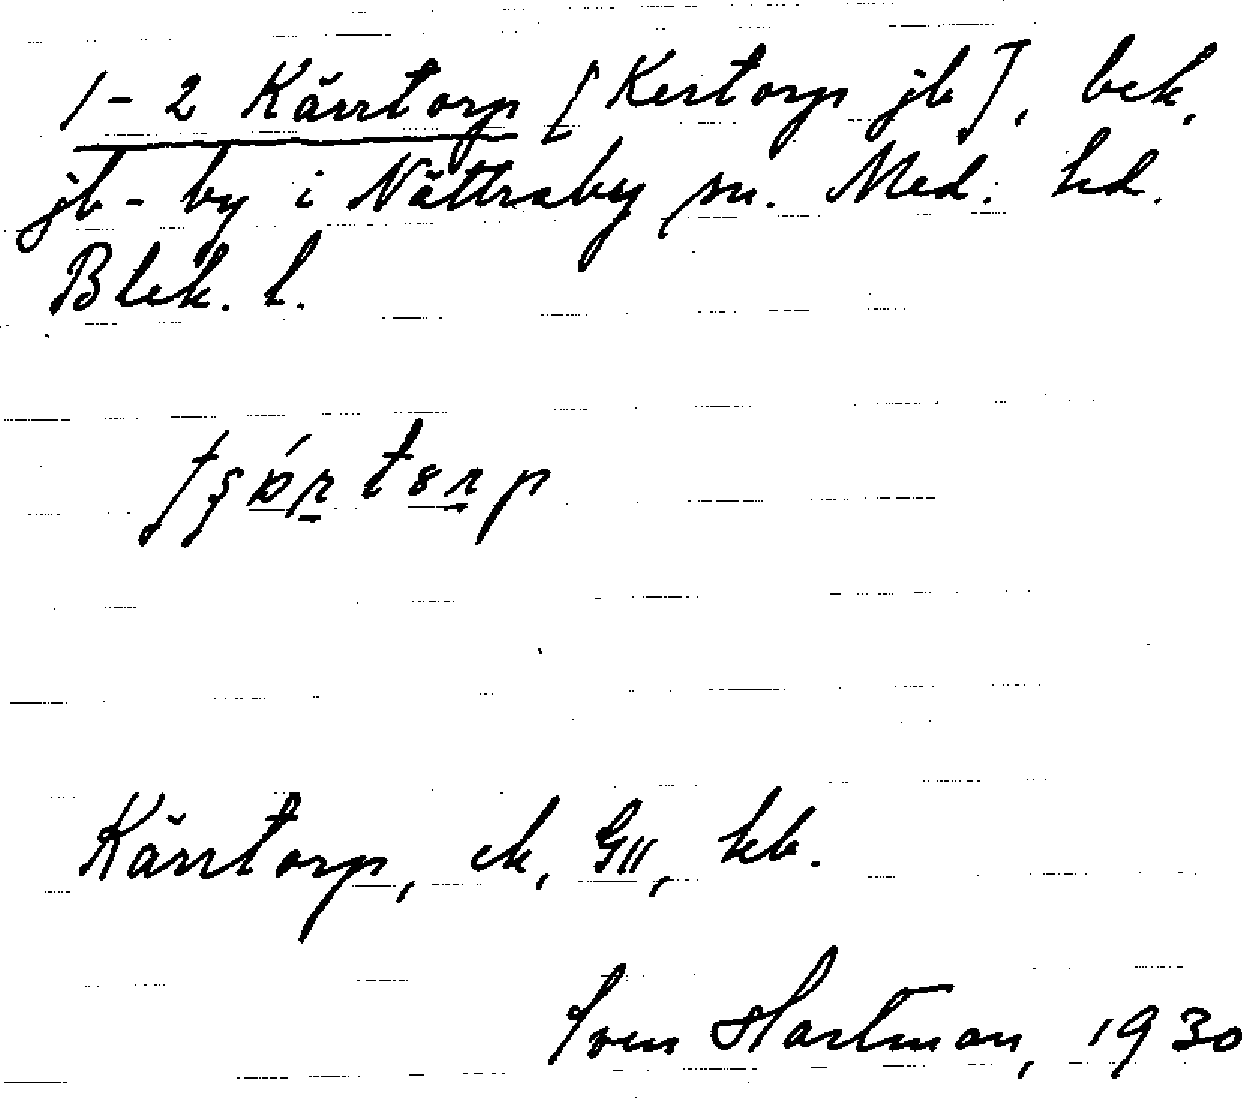 1-2 Kärrtorp [Kertorp jb], bek,
jb-by i Nättraby sn. Med. hd.
Blek. l.
Kärrtorp, ek, GII, kb.
Sven Hartman, 1930